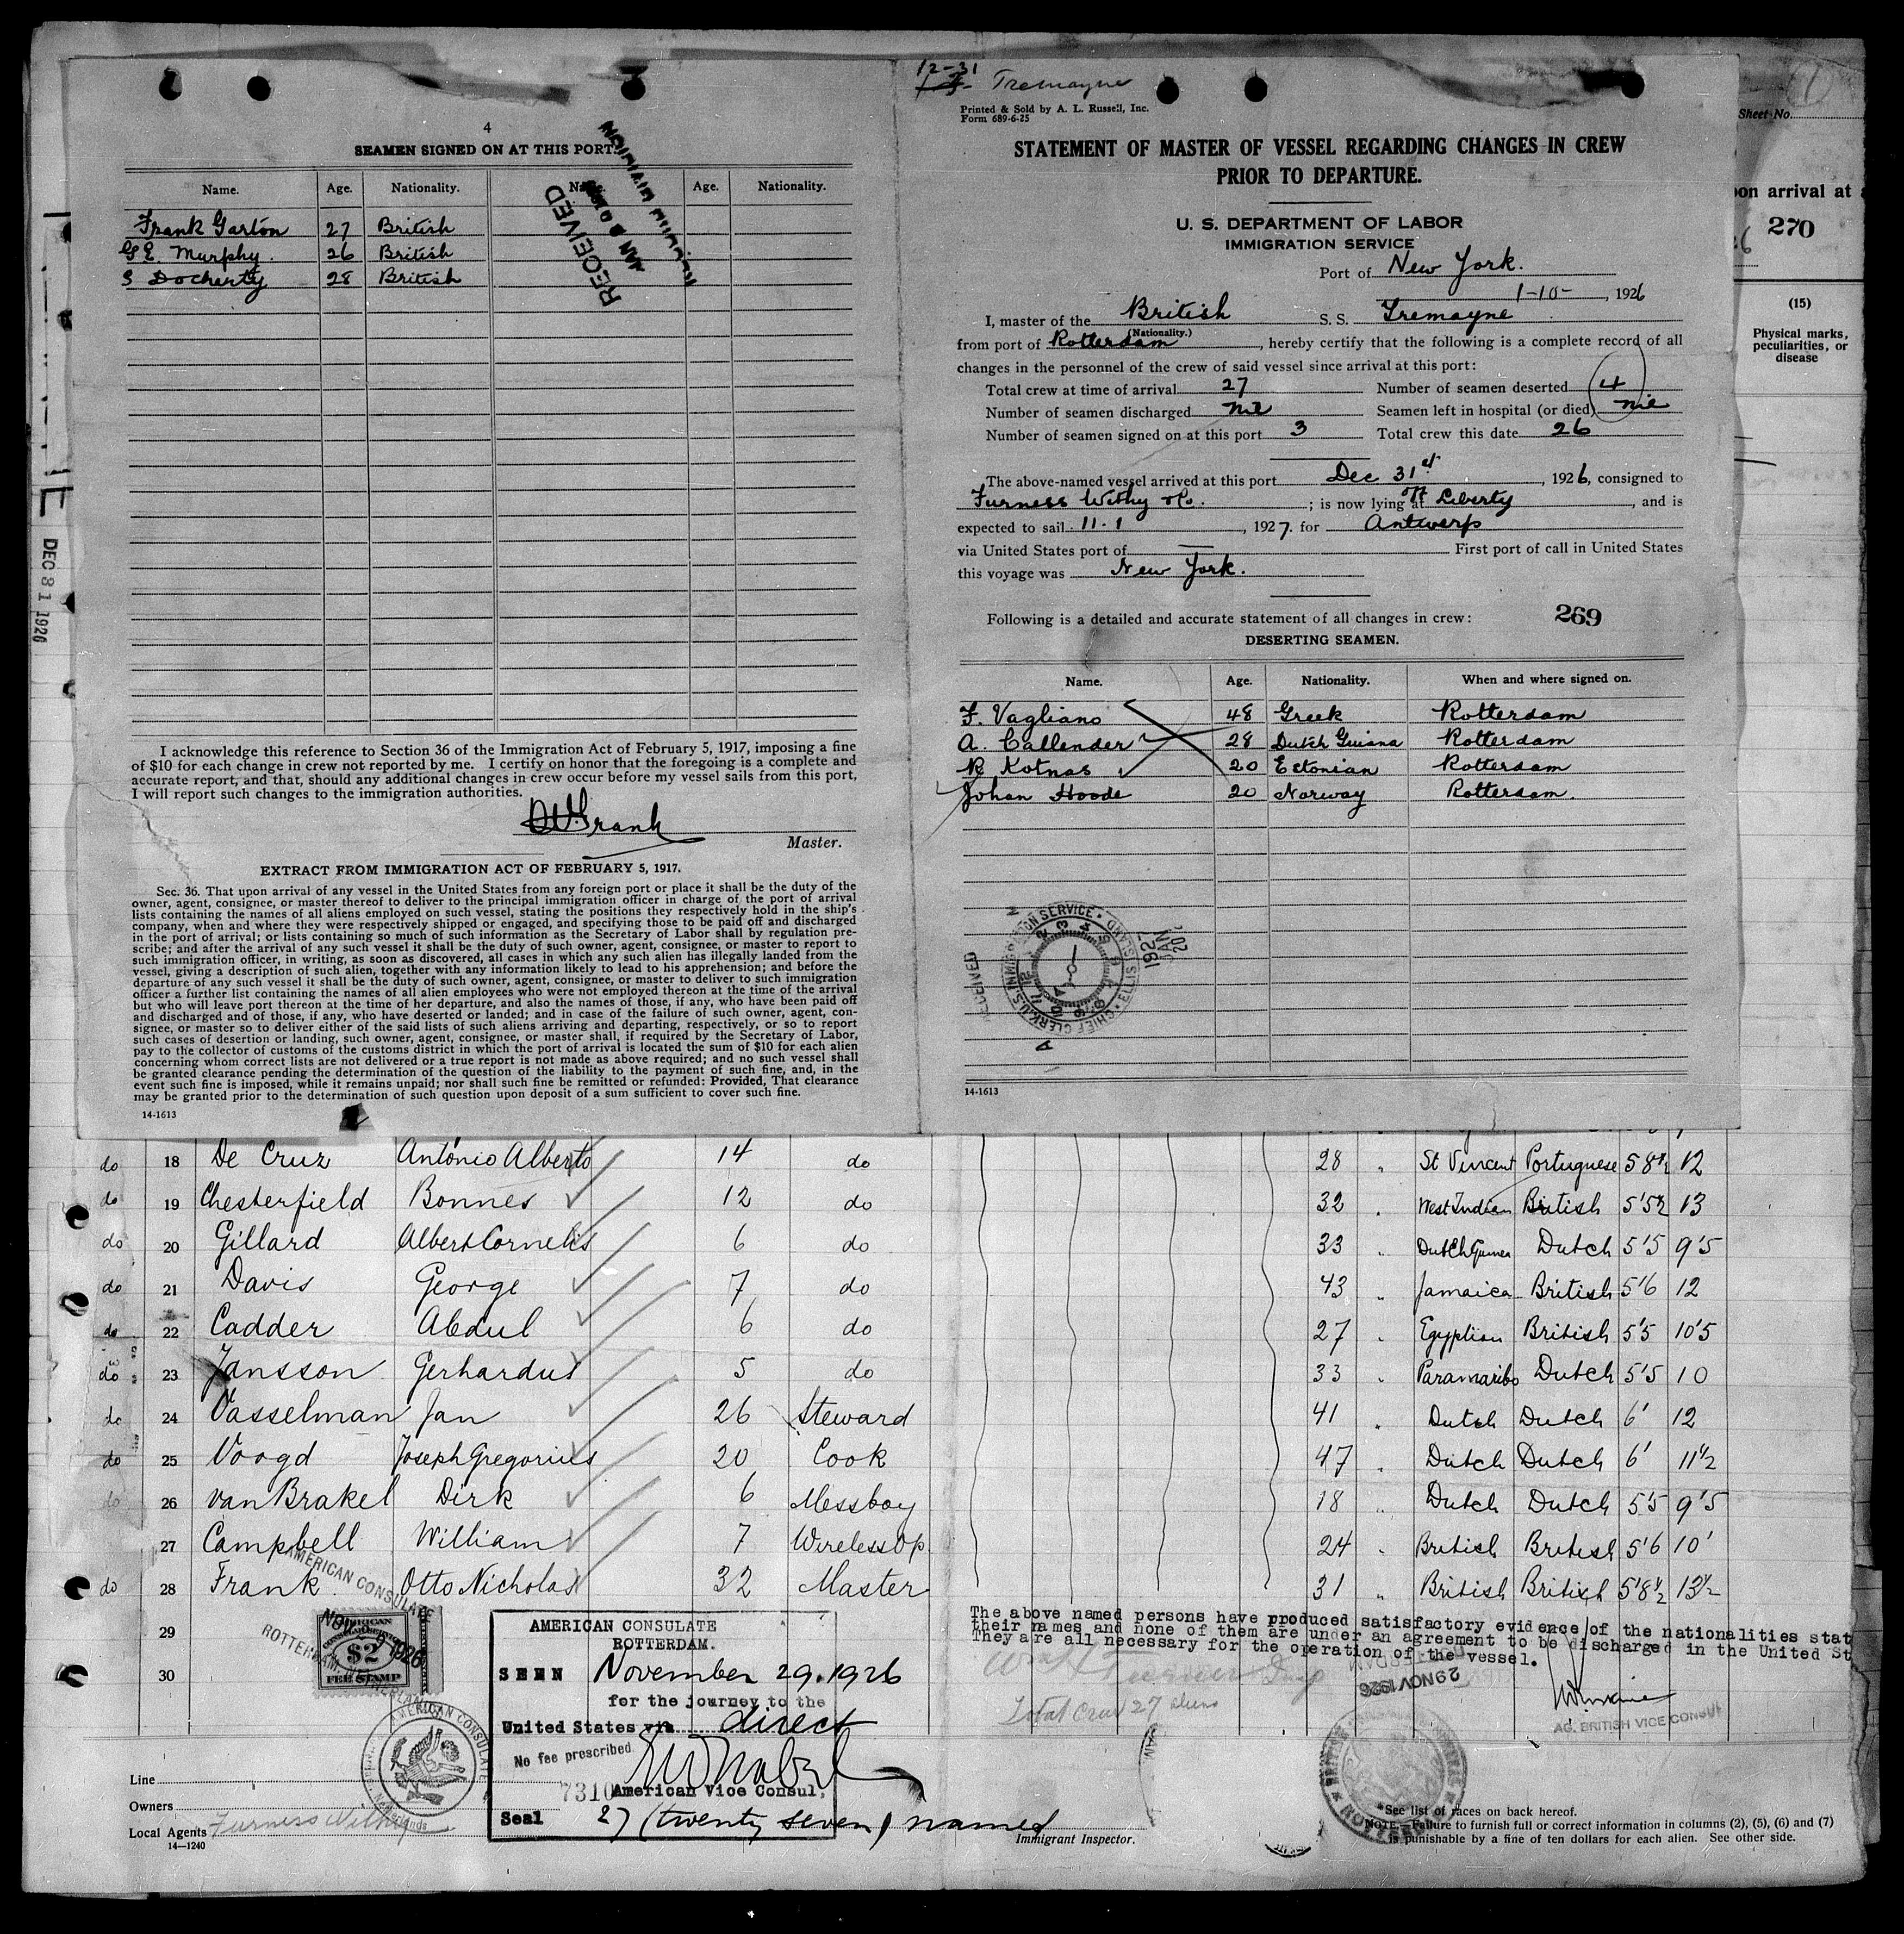 4
SEAMEN SIGNED ON AT THIS PORT.
Name. Age. Nationality. Age. Nationality.
Frank Garton 27 British
G E. Murphy. 26 British
S Docherty 28 British
RECEIVED
JAN
I acknowledge this reference to Section 36 of the Immigration Act of February 5, 1917, imposing a fine
of $10 for each change in crew not reported by me. I certify on honor that the foregoing is a complete and
accurate report, and that, should any additional changes in crew occur before my vessel sails from this port,
I will report such changes to the immigration authorities.
Frank
Master.
EXTRACT FROM IMMIGRATION ACT OF FEBRUARY 5, 1917.
Sec. 36. That upon arrival of any vessel in the United States from any foreign port or place it shall be the duty of the
owner, agent, consignee, or master thereof to deliver to the principal immigration officer in charge of the port of arrival
lists containing the names of all aliens employed on such vessel, stating the positions they respectively hold in the ship's
company, when and where they were respectively shipped or engaged, and specifying those to be paid off and discharged
in the port of arrival; or lists containing so much of such information as the Secretary of Labor shall by regulation pre-
scribe; and after the arrival of any such vessel it shall be the duty of such owner, agent, consignee, or master to report to
such immigration officer, in writing, as soon as discovered, all cases in which any such alien has illegally landed from the
vessel, giving a description of such alien, together with any information likely to lead to his apprehension; and before the
departure of any such vessel it shall be the duty of such owner, agent, consignee, or master to deliver to such immigration
officer a further list containing the names of all alien employees who were not employed thereon at the time of the arrival
but who will leave port thereon at the time of her departure, and also the names of those, if any, who have been paid off
and discharged and of those, if any, who have deserted or landed; and in case of the failure of such owner, agent, con-
signee, or master so to deliver either of the said lists of such aliens arriving and departing, respectively, or so to report
such cases of desertion or landing, such owner, agent, consignee, or master shall, if required by the Secretary of Labor,
pay to the collector of customs of the customs district in which the port of arrival is located the sum of $10 for each alien
concerning whom correct lists are not delivered or a true report is not made as above required; and no such vessel shall
be granted clearance pending the determination of the question of the liability to the payment of such fine, and, in the
event such fine is imposed, while it remains unpaid; nor shall such fine be remitted or refunded: Provided, That clearance
may be granted prior to the determination of such question upon deposit of a sum sufficient to cover such fine.
14-1613
DEC 31 1926
12-31
Tremayne
Printed & Sold by A. L. Russell, Inc.
Form 689-6-25
STATEMENT OF MASTER OF VESSEL REGARDING CHANGES IN CREW
PRIOR TO DEPARTURE.
U. S. DEPARTMENT OF LABOR
IMMIGRATION SERVICE
Port of New York.
1-10-, 1926
I, master of the British S. S. Tremayne
(Nationality.)
from port of Rotterdam, hereby certify that the following is a complete record of all
changes in the personnel of the crew of said vessel since arrival at this port:
Total crew at time of arrival 27 Number of seamen deserted 4
Number of seamen discharged nil Seamen left in hospital (or died) nil
Number of seamen signed on at this port 3 Total crew this date 26
The above-named vessel arrived at this port Dec 31st, 1926, consigned to
Furness Withy & Co.; is now lying at off Liberty, and is
expected to sail 11.1, 1927. for Antwerp
via United States port of — First port of call in United States
this voyage was New York.
Following is a detailed and accurate statement of all changes in crew: 269
DESERTING SEAMEN.
Name. Age. Nationality. When and where signed on.
F. Vagliano 48 Greek Rotterdam
A. Callender 28 Dutch Guiana Rotterdam
R Kotnas 20 Estonian Rotterdam
Johan Hoode 20 Norway Rotterdam.
RECEIVED
CHIEF CLERK U.S. IMMIGRATION SERVICE ELLIS ISLAND
192
JAN
20
14-1613
Sheet No.
1
on arrival at
270
(15)
Physical marks,
peculiarities, or
disease
do 18 De Cruz Antonio Alberto 14 do 28 " St Vincent Portuguese 5 8½ 12
do 19 Chesterfield Bonnes 12 do 32 " West Indian British 5'5½ 13
do 20 Gillard Albert Cornelis 6 do 33 " Dutch Guinea Dutch 5'5 9'5
do 21 Davis George 7 do 43 " Jamaica British 5'6 12
do 22 Cadder Abdul 6 do 27 " Egyptian British 5'5 10'5
do 23 Jansson Gerhardus 5 do 33 " Paramaribo Dutch 5'5 10
do 24 Vasselman Jan 26 Steward 41 " Dutch Dutch 6' 12
do 25 Voogd Joseph Gregorius 20 Cook 47 " Dutch Dutch 6' 11½
do 26 van Brakel Dirk 6 Messboy 18 " Dutch Dutch 5'5 9'5
27 Campbell William 7 Wireless Op. 24 " British British 5'6 10'
do 28 Frank Otto Nicholas 32 Master 31 " British British 5'8½ 13½
29
30
AMERICAN CONSULATE
NOV 1926
ROTTERDAM, NETHERLANDS
AMERICAN
CONSULAR SERVICE
$2
FEE STAMP
AMERICAN CONSULATE
AMERICAN CONSULATE
ROTTERDAM.
SEEN November 29. 1926
for the journey to the
United States via direct
No fee prescribed.
7310 American Vice Consul,
Seal 27 (twenty seven) named
The above named persons have produced satisfactory evidence of the nationalities stat
their names and none of them are under an agreement to be discharged in the United St
They are all necessary for the operation of the vessel.
29 NOV 1926
Total Crew 27 aliens
AG. BRITISH VICE CONSUL
Line
Owners
Local Agents Furness Withy
14—1240
Immigrant Inspector.
*See list of races on back hereof.
NOTE.—Failure to furnish full or correct information in columns (2), (5), (6) and (7)
is punishable by a fine of ten dollars for each alien. See other side.